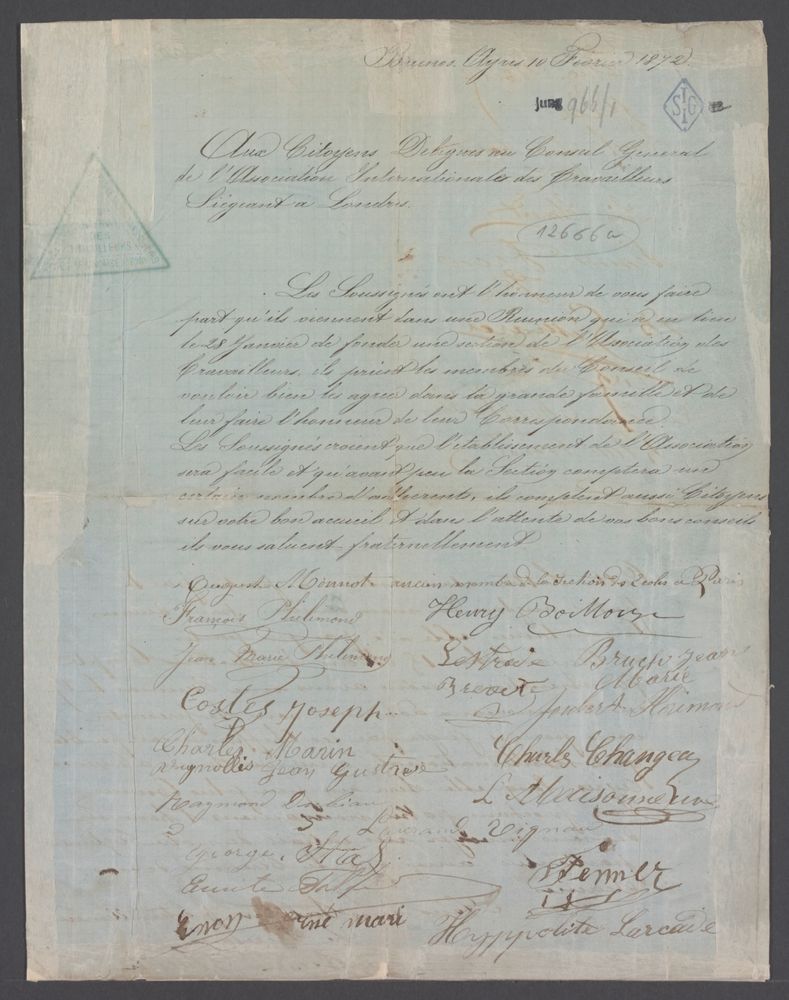 Buenos Ayres 10 Février 1872
Jung 966/1
S I G
12666a
Aux Citoyens Delegues au Conseil General
de l'Association Internationales des Travailleurs
Siegeant a Londres
Les Soussignés ont l'honneur de vous faire
part qu'ils viennent dans une Reunion qui a eu lieu
le 28 Janvier de fonder une section de l'Association des
Travailleurs, ils prient les membres du Conseil de
vouloir bien les agreer dans la grande famille et de
leur faire l'honneur de leur Correspondance
Les Soussignés croient que l'etablissement de l'Association
sera facile et qu'avant peu la Section comptera un
certain nombre d'adherents, ils comptent aussi Citoyens
sur votre bon acceuil et dans l'attente de vos bons conseils
ils vous saluent fraternellement
August Monnot ancien membre de la section des Ecoles a Paris
François Philimond Henry
Jean Marie Bruch Jean
Marie
Costes Joseph
Charles Marin Charles Changea
Jean Gustave L Maisonneuve
Raymond
Vignau
George
Emile
Marie Hyppolite Larcade